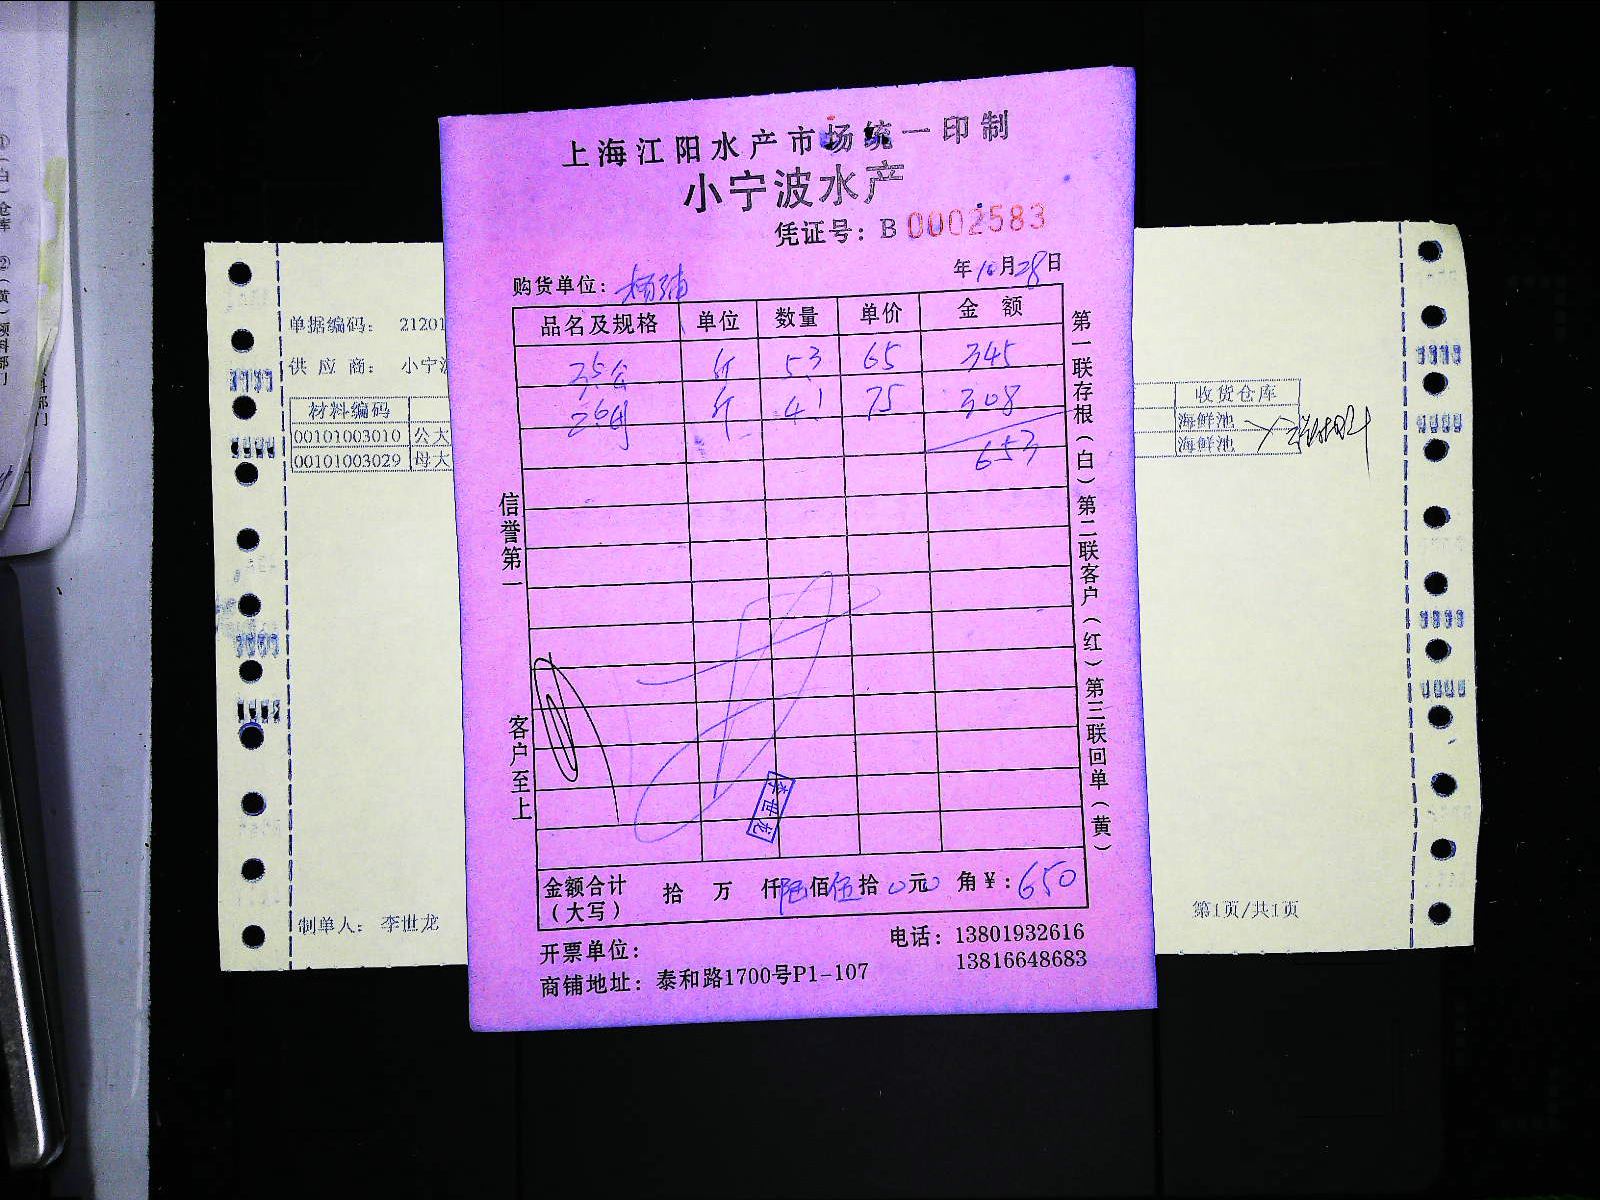 上海江阳水产市场统一印制
小宁波水产
凭证号：B 0002583
购货单位：杨浦
年10月28日
品名及规格 单位 数量 单价 金额
35公 斤 53 65 345
26母 斤 41 75 308
653
信誉第一
客户至上
第一联存根（白）第二联客户（红）第三联回单（黄）
李世龙
金额合计（大写） 拾 万 仟陆佰伍拾0元0角¥：650
开票单位：
电话：13801932616
13816648683
商铺地址：泰和路1700号P1-107
单据编码： 21201
供应商： 小宁波
材料编码
00101003010 公大
00101003029 母大
收货仓库
海鲜池
海鲜池
制单人： 李世龙
第1页/共1页